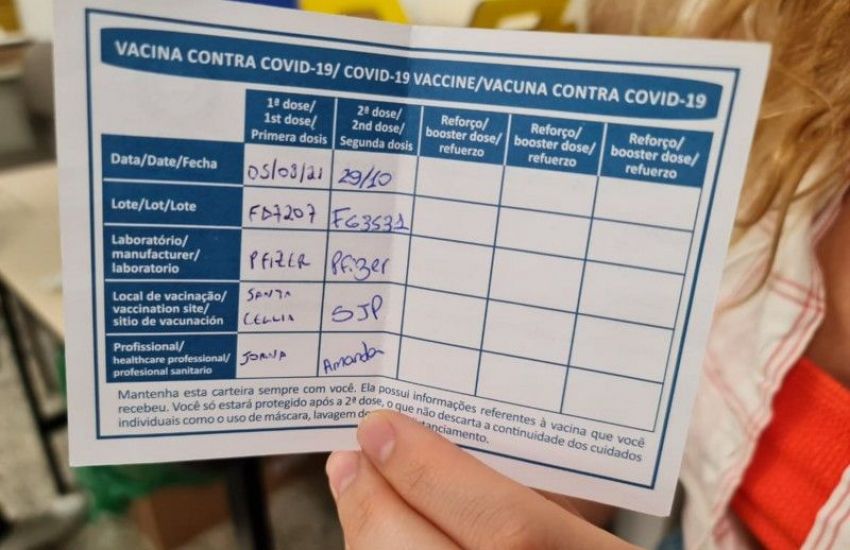 VACINA CONTRA COVID-19/ COVID-19 VACCINE/VACUNA CONTRA COVID-19
1ª dose/
1st dose/
Primera dosis
2ª dose/
2nd dose/
Segunda dosis
Reforço/
booster dose/
refuerzo
Reforço/
booster dose/
refuerzo
Reforço/
booster dose/
refuerzo
Data/Date/Fecha
05/08/21
29/10
Lote/Lot/Lote
FD7207
FG3531
Laboratório/
manufacturer/
laboratorio
PFIZER
Pfizer
Local de vacinação/
vaccination site/
sitio de vacunación
SANTA
CELLIA
SJP
Profissional/
healthcare professional/
profesional sanitario
JOANA
Amanda
Mantenha esta carteira sempre com você. Ela possui informações referentes à vacina que você
recebeu. Você só estará protegido após a 2ª dose, o que não descarta a continuidade dos cuidados
individuais como o uso de máscara, lavagem de